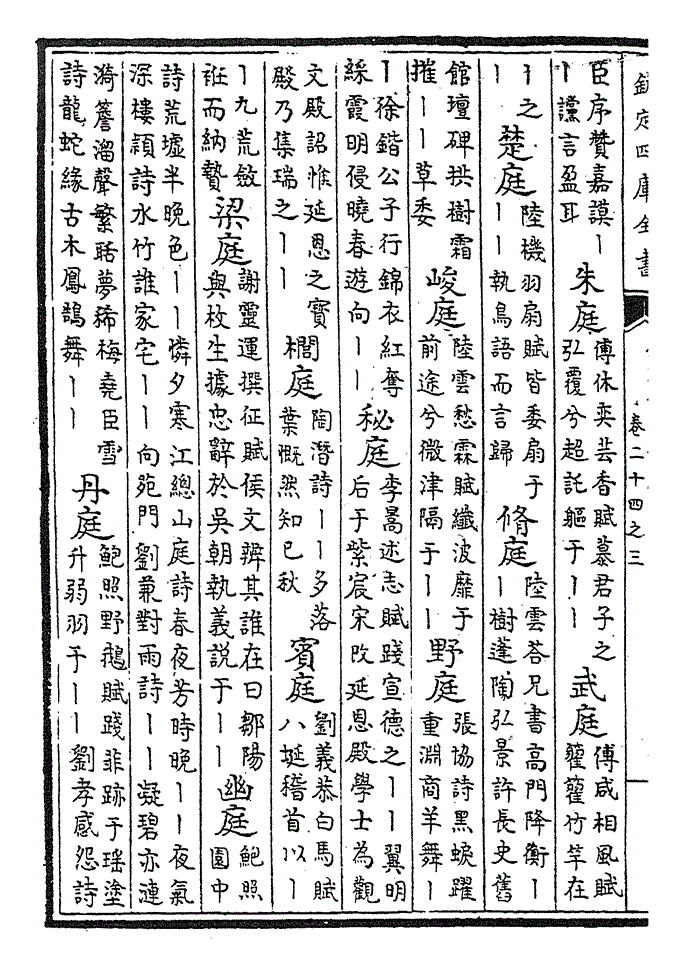 欽定四庫全書
卷二十四之三
臣序贊嘉謨丨丨讜言盈耳 朱庭 傅休奕芸香賦慕君子之弘覆兮超託軀于丨丨 武庭 傅咸相風賦籊籊竹竿在
丨之丨 楚庭 陸機羽扇賦皆委扇于丨丨執鳥語而言歸 脩庭 陸雲荅兄書高門降衡丨丨樹蓬陶弘景許長史舊
館壇碑拱樹霜摧丨丨草委 峻庭 陸雲愁霖賦纖波靡于前途兮微津隔于丨丨 野庭 張協詩黑蜧躍重淵商羊舞丨
丨徐鍇公子行錦衣紅奪綵霞明侵曉春遊向丨丨 秘庭 李暠述志賦踐宣德之丨丨翼明后于紫宸宋改延恩殿學士為觀
文殿詔惟延恩之寳殿乃集瑞之丨丨 櫩庭 陶潛詩丨丨多落葉慨然知已秋 賓庭 劉義恭白馬賦八埏稽首以丨
丨九荒斂衽而納贄 梁庭 謝靈運撰征賦俟文辨其誰在曰鄒陽與枚生據忠辭於吳朝執義説于丨丨 幽庭 鮑照園中
詩荒墟半晚色丨丨憐夕寒江總山庭詩春夜芳時晚丨丨夜氣深樓穎詩水竹誰家宅丨丨向苑門劉兼對雨詩丨丨凝碧亦漣
漪簷溜聲繁聒夢稀梅堯臣雪詩龍蛇緣古木鳳鵠舞丨丨 丹庭 鮑照野鵝賦踐菲跡于瑤塗升弱羽于丨丨劉孝感怨詩